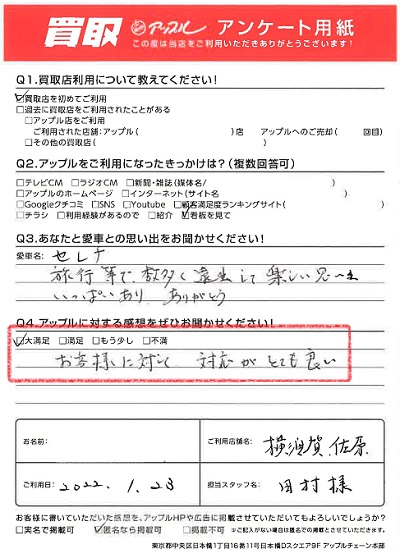 買取 アップル アンケート用紙
この度は当店をご利用いただきありがとうございます!
Q1.買取店利用について教えてください!
☑買取店を初めてご利用
□過去に買取店をご利用されたことがある
□アップル店をご利用
ご利用された店舗:アップル( )店 アップルへのご売却( 回目)
□その他の買取店( )
Q2.アップルをご利用になったきっかけは?(複数回答可)
□テレビCM □ラジオCM □新聞・雑誌(媒体名/ )
□アップルのホームページ □インターネット(サイト名 )
□Googleクチコミ □SNS □Youtube □顧客満足度ランキングサイト( )
□チラシ □利用経験があるので □紹介 ☑看板を見て
Q3.あなたと愛車との思い出をお聞かせください!
愛車名: セレナ
旅行等で、数多く遠出して楽しい思い出
いっぱいあり、ありがとう
Q4.アップルに対する感想をぜひお聞かせください!
☑大満足 □満足 □もう少し □不満
お客様に対して 対応がとても良い
お名前: ご利用店舗名: 横須賀佐原
ご利用日: 2022.1.23 担当スタッフ名: 田村様
お客様に書いていただいた感想を、アップルHPや広告に掲載させていただいてもよろしいでしょうか?
□実名で掲載可 ☑匿名なら掲載可 □掲載不可 ※ご記入がない場合は匿名での掲載とさせていただきます。
東京都中央区日本橋1丁目16番11号日本橋Dスクエア9F アップルチェーン本部